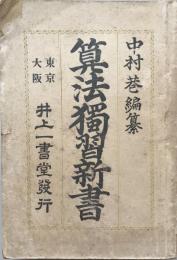 中村巷編纂
算法獨習新書
東京
大阪
井上一書堂發行